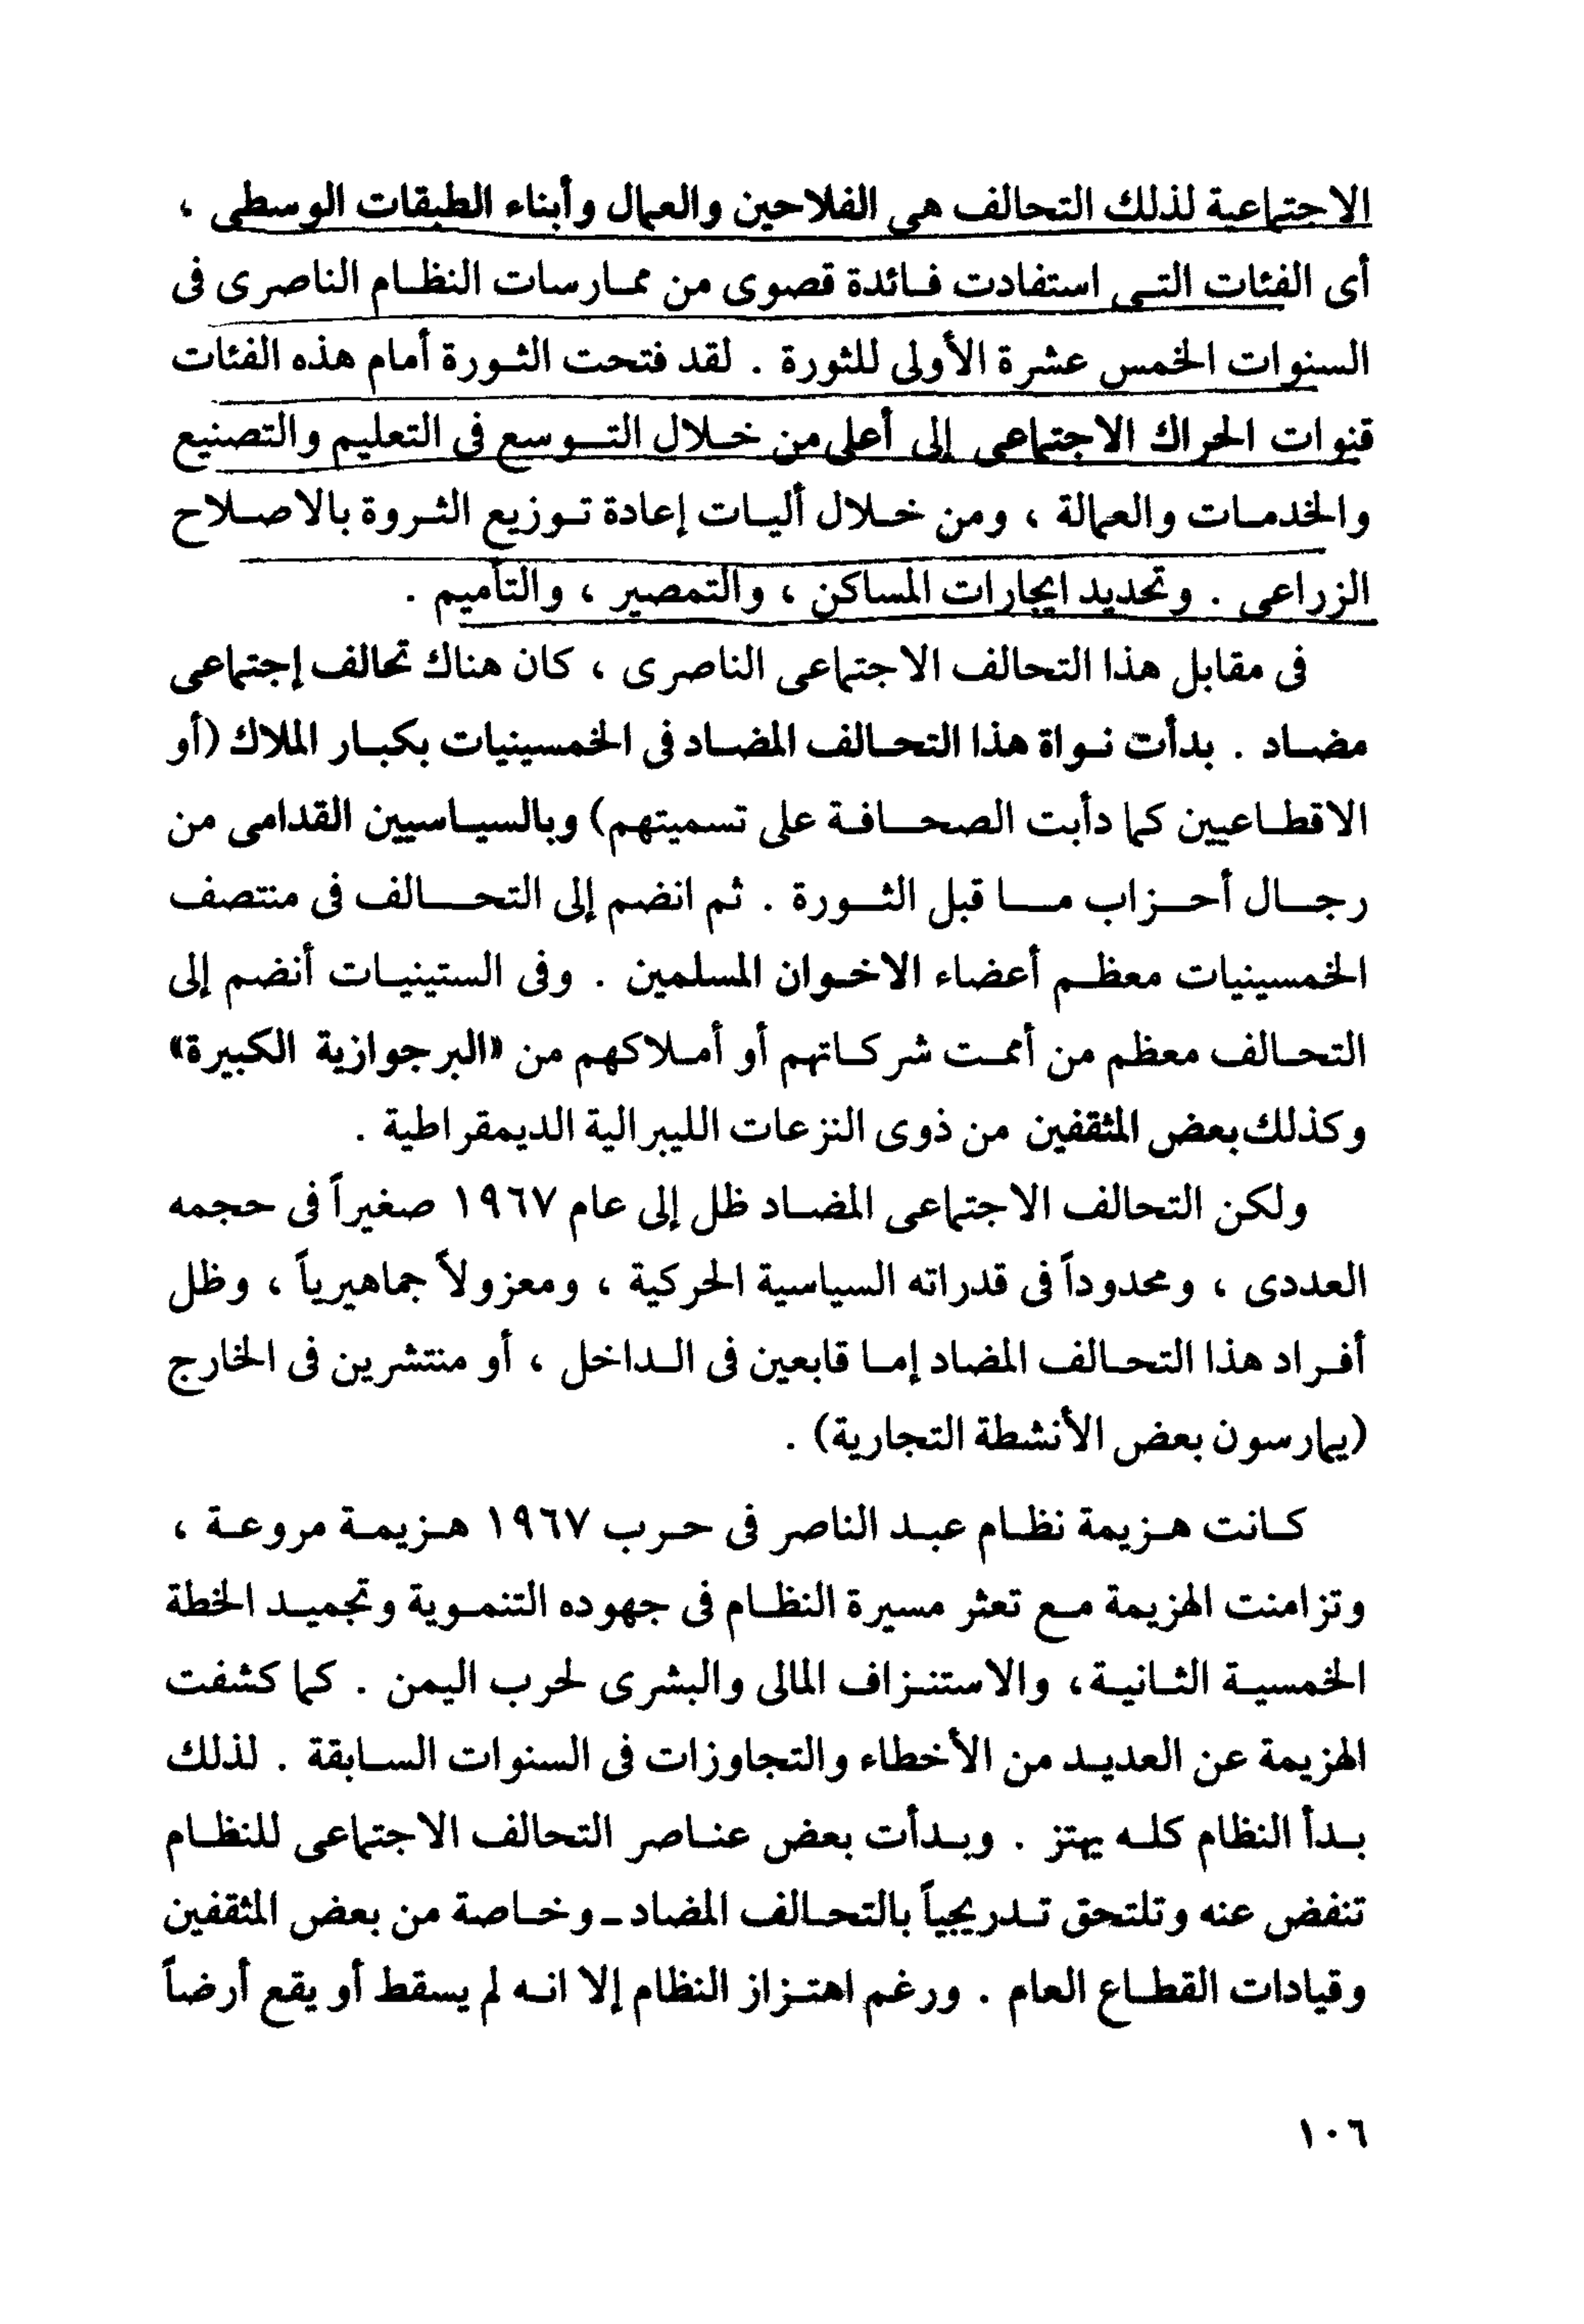 الاجتماعية لذلك التحالف هى الفلاحين والعمال وأبناء الطبقات الوسطى ،
أى الفئات التى استفادت فائدة قصوى من ممارسات النظام الناصرى فى
السنوات الخمس عشرة الأولى للثورة . لقد فتحت الثورة أمام هذه الفئات
قنوات الحراك الاجتماعى إلى أعلى من خلال التوسع فى التعليم والتصنيع
والخدمات والعمالة ، ومن خلال أليات إعادة توزيع الثروة بالاصلاح
الزراعى . وتحديد ايجارات المساكن ، والتمصير ، والتأميم .
فى مقابل هذا التحالف الاجتماعى الناصرى ، كان هناك تحالف إجتماعى
مضاد . بدأت نواة هذا التحالف المضاد فى الخمسينيات بكبار الملاك (أو
الاقطاعيين كما دأبت الصحافة على تسميتهم) وبالسياسيين القدامى من
رجال أحزاب ما قبل الثورة . ثم انضم إلى التحالف فى منتصف
الخمسينيات معظم أعضاء الاخوان المسلمين . وفى الستينيات أنضم إلى
التحالف معظم من أممت شركاتهم أو أملاكهم من «البرجوازية الكبيرة»
وكذلك بعض المثقفين من ذوى النزعات الليبرالية الديمقراطية .
ولكن التحالف الاجتماعى المضاد ظل إلى عام ١٩٦٧ صغيراً فى حجمه
العددى ، ومحدوداً فى قدراته السياسية الحركية ، ومعزولاً جماهيرياً ، وظل
أفراد هذا التحالف المضاد إما قابعين فى الداخل ، أو منتشرين فى الخارج
(يمارسون بعض الأنشطة التجارية) .
كانت هزيمة نظام عبد الناصر فى حرب ١٩٦٧ هزيمة مروعة ،
وتزامنت الهزيمة مع تعثر مسيرة النظام فى جهوده التنموية وتجميد الخطة
الخمسية الثانية، والاستنزاف المالى والبشرى لحرب اليمن . كما كشفت
الهزيمة عن العديد من الأخطاء والتجاوزات فى السنوات السابقة . لذلك
بدأ النظام كله يهتز . وبدأت بعض عناصر التحالف الاجتماعى للنظام
تنفض عنه وتلتحق تدريجياً بالتحالف المضاد - وخاصة من بعض المثقفين
وقيادات القطاع العام . ورغم اهتزاز النظام إلا انه لم يسقط أو يقع أرضاً
١٠٦